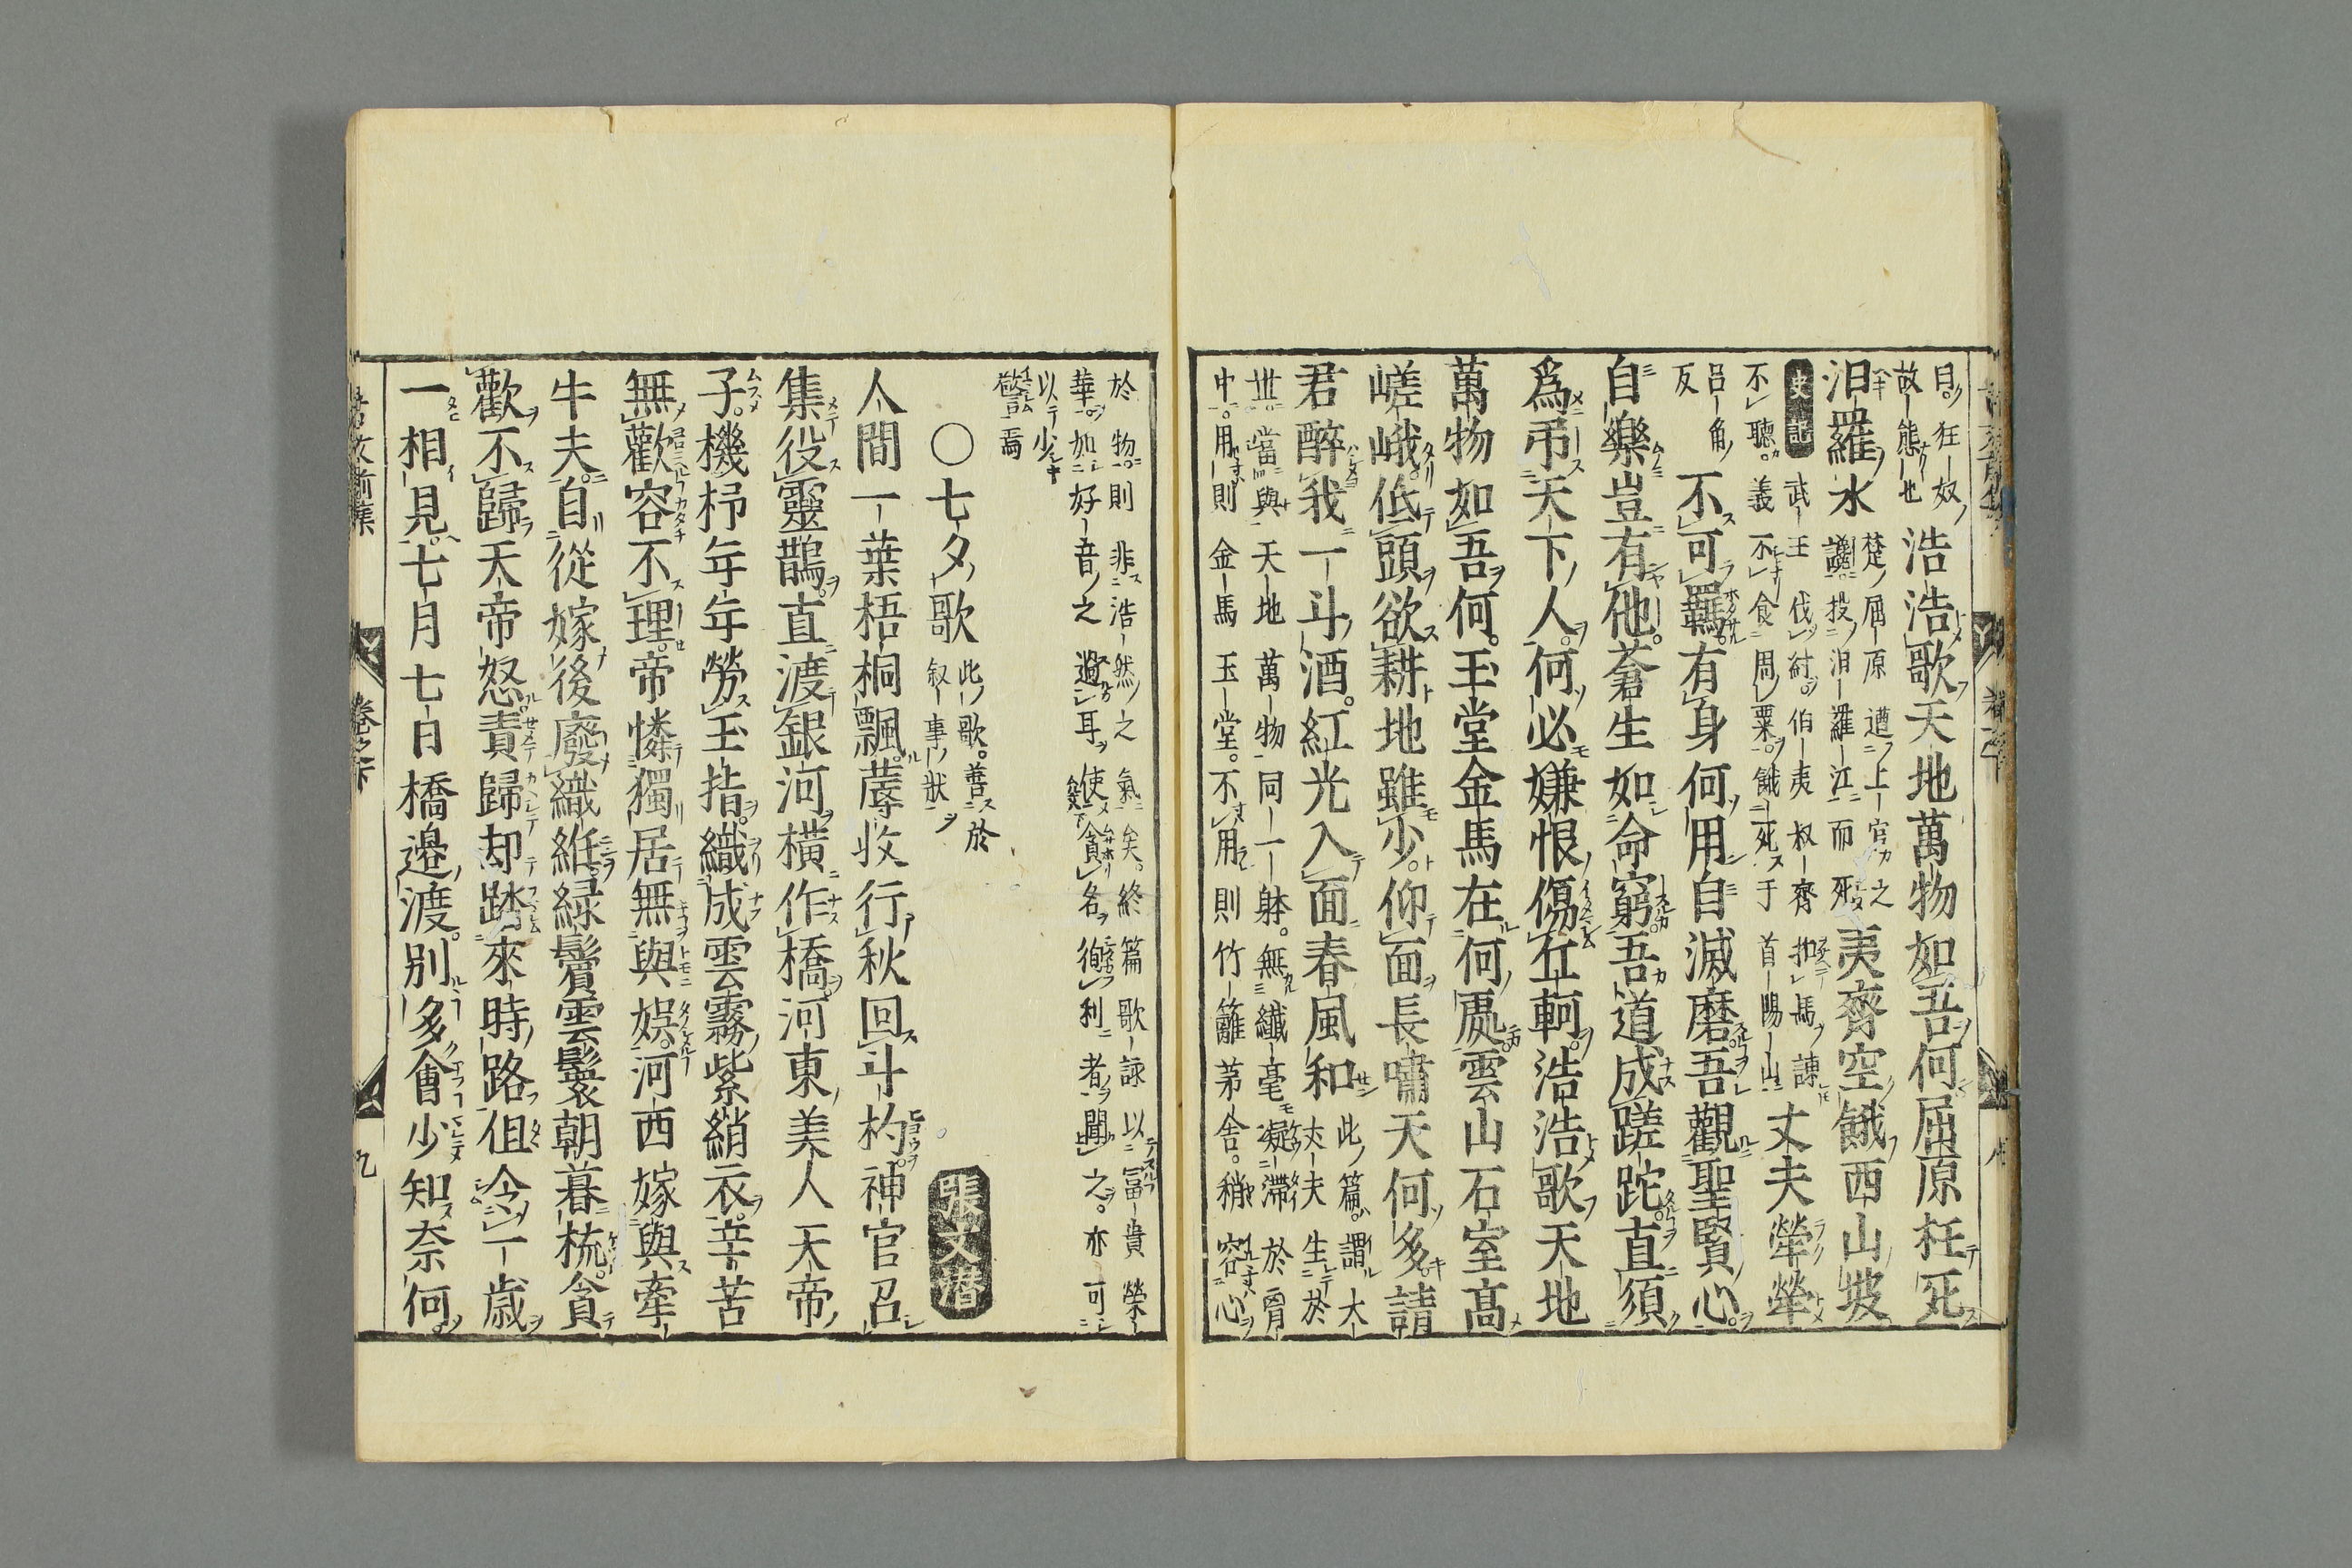 目狂奴
故態也
浩浩歌天地萬物如吾何屈原枉死
汨羅水
楚屈原遭上官之
讒投汨羅江而死
夷齊空餓西山坡
史記
武王伐紂伯夷叔齊扣馬諫
不聽義不食周粟餓死于首陽山
丈夫犖犖
呂角
反
不可羈有身何用自滅磨吾觀聖賢心
自樂豈有他蒼生如命窮吾道成蹉跎直須
為弔天下人何必嫌恨傷丘軻浩浩歌天地
萬物如吾何玉堂金馬在何處雲山石室高
嵯峨低頭欲耕地雖少仰面長嘯天何多請
君醉我一斗酒紅光入面春風和
此篇謂大
丈夫生於
世當與天地萬物同一躰無纖毫凝滯於胷
中用則金馬玉堂不用則竹籬茅舍稍容心
於物則非浩然之氣矣終篇歌詠以冨貴榮
華如好音之過耳使貪名徇利者聞之亦可
以少
警焉
○七夕歌
此歌善於
叙事狀
張文潜
人間一葉梧桐飄蓐收行秋回斗杓神官召
集役靈鵲直渡銀河橫作橋河東美人天帝
子機杼年年勞玉指織成雲霧紫綃衣辛苦
無歡容不理帝憐獨居無與娯河西嫁與牽
牛夫自從嫁後廢織絍緑鬢雲鬟朝暮梳貪
歡不歸天帝怒責歸却踏來時路但令一歲
一相見七月七日橋邊渡別多會少知奈何
卷之下
九